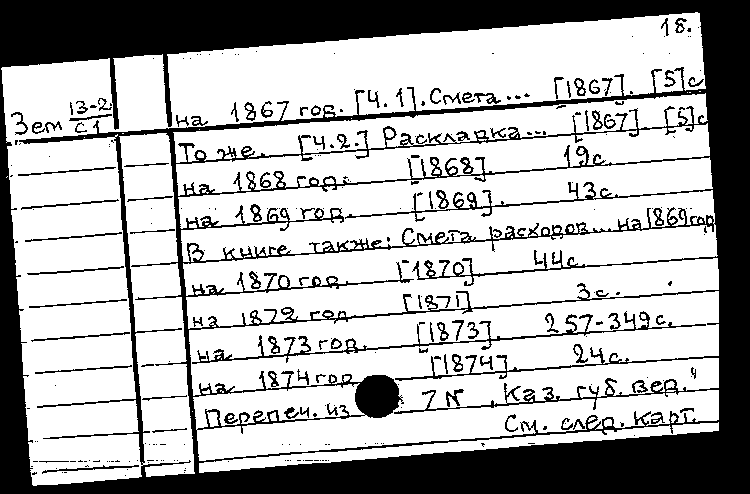 18.
Зем 13-2/С1
на 1867 год. [Ч.1]. Смета... [1867]. [5]с
То же. [Ч.2.] Раскладка... [1867] [5]с
на 1868 год. [1868]. 19с.
на 1869 год. [1869]. 43с.
В книге также: Смета расходов... на 1869 год
на 1870 год. [1870]. 44с.
на 1872 год [1871] 3с.
на 1873 год. [1873]. 257-349с.
на 1874 год [1874]. 24с.
Перепеч. из 7 № „Каз. губ. вед."
См. след. карт.